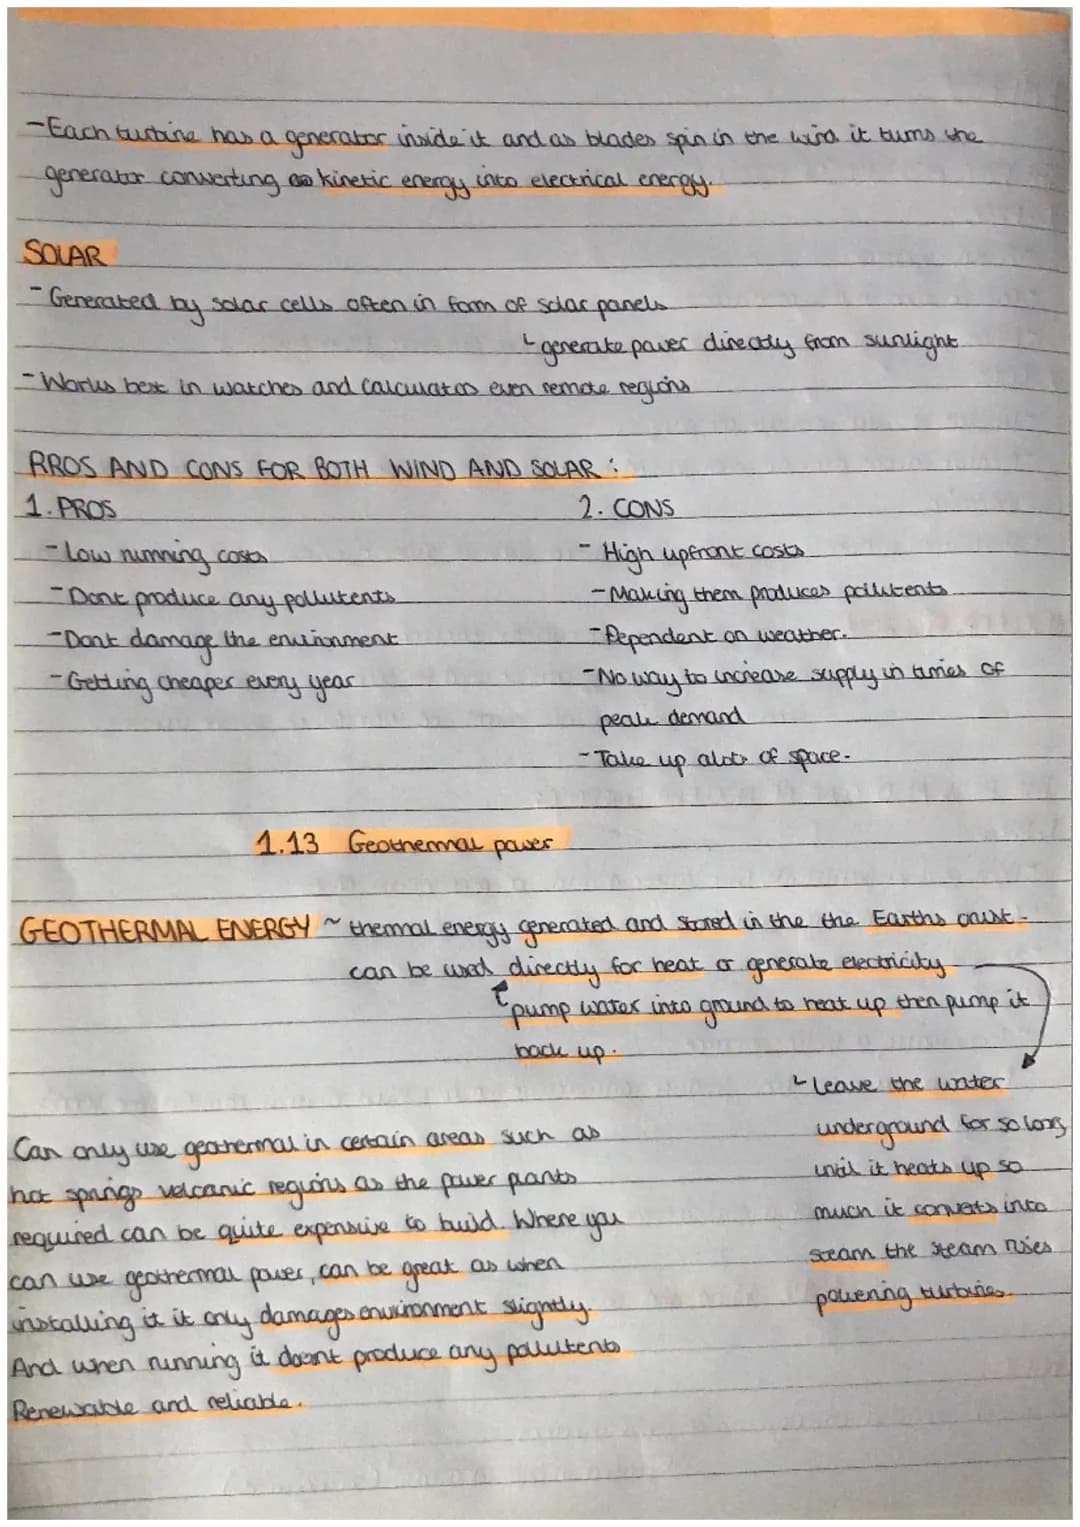 -Each turbine has a generator inside it and as blades spin in the wind it turns the
generator converting kinetic energy into electrical energy.
SOLAR
-Generated by solar cells often in form of solar panels
generate power directly from sunlight
-Works best in watches and calculators even remote regions
PROS AND CONS FOR BOTH WIND AND SOLAR :
1. PROS
2. CONS
-Low running costs
- High upfront costs
-Dont produce any pollutents
-Making them produces pollutents
-Dont damage the environment
-Dependent on weather.
-Getting cheaper every year
-No way to increase supply in times of
peak demand
-Take up alots of space.
1.13 Geothermal power
GEOTHERMAL ENERGY ~ thermal energy generated and stored in the the Earths crust -
can be used directly for heat or generate electricity
pump water into ground to heat up then pump it
back up.
Leave the water
underground for so long
until it heats up so
much it converts into
steam the steam rises
powering turbines.
Can only use geothermal in certain areas such as
hot springs velcanic regions as the power plants
required can be quite expensive to build. Where you
can use geothermal power, can be great as when
installing it it only damages environment slightly.
And when running it doesnt produce any pollutents
Renewable and reliable.